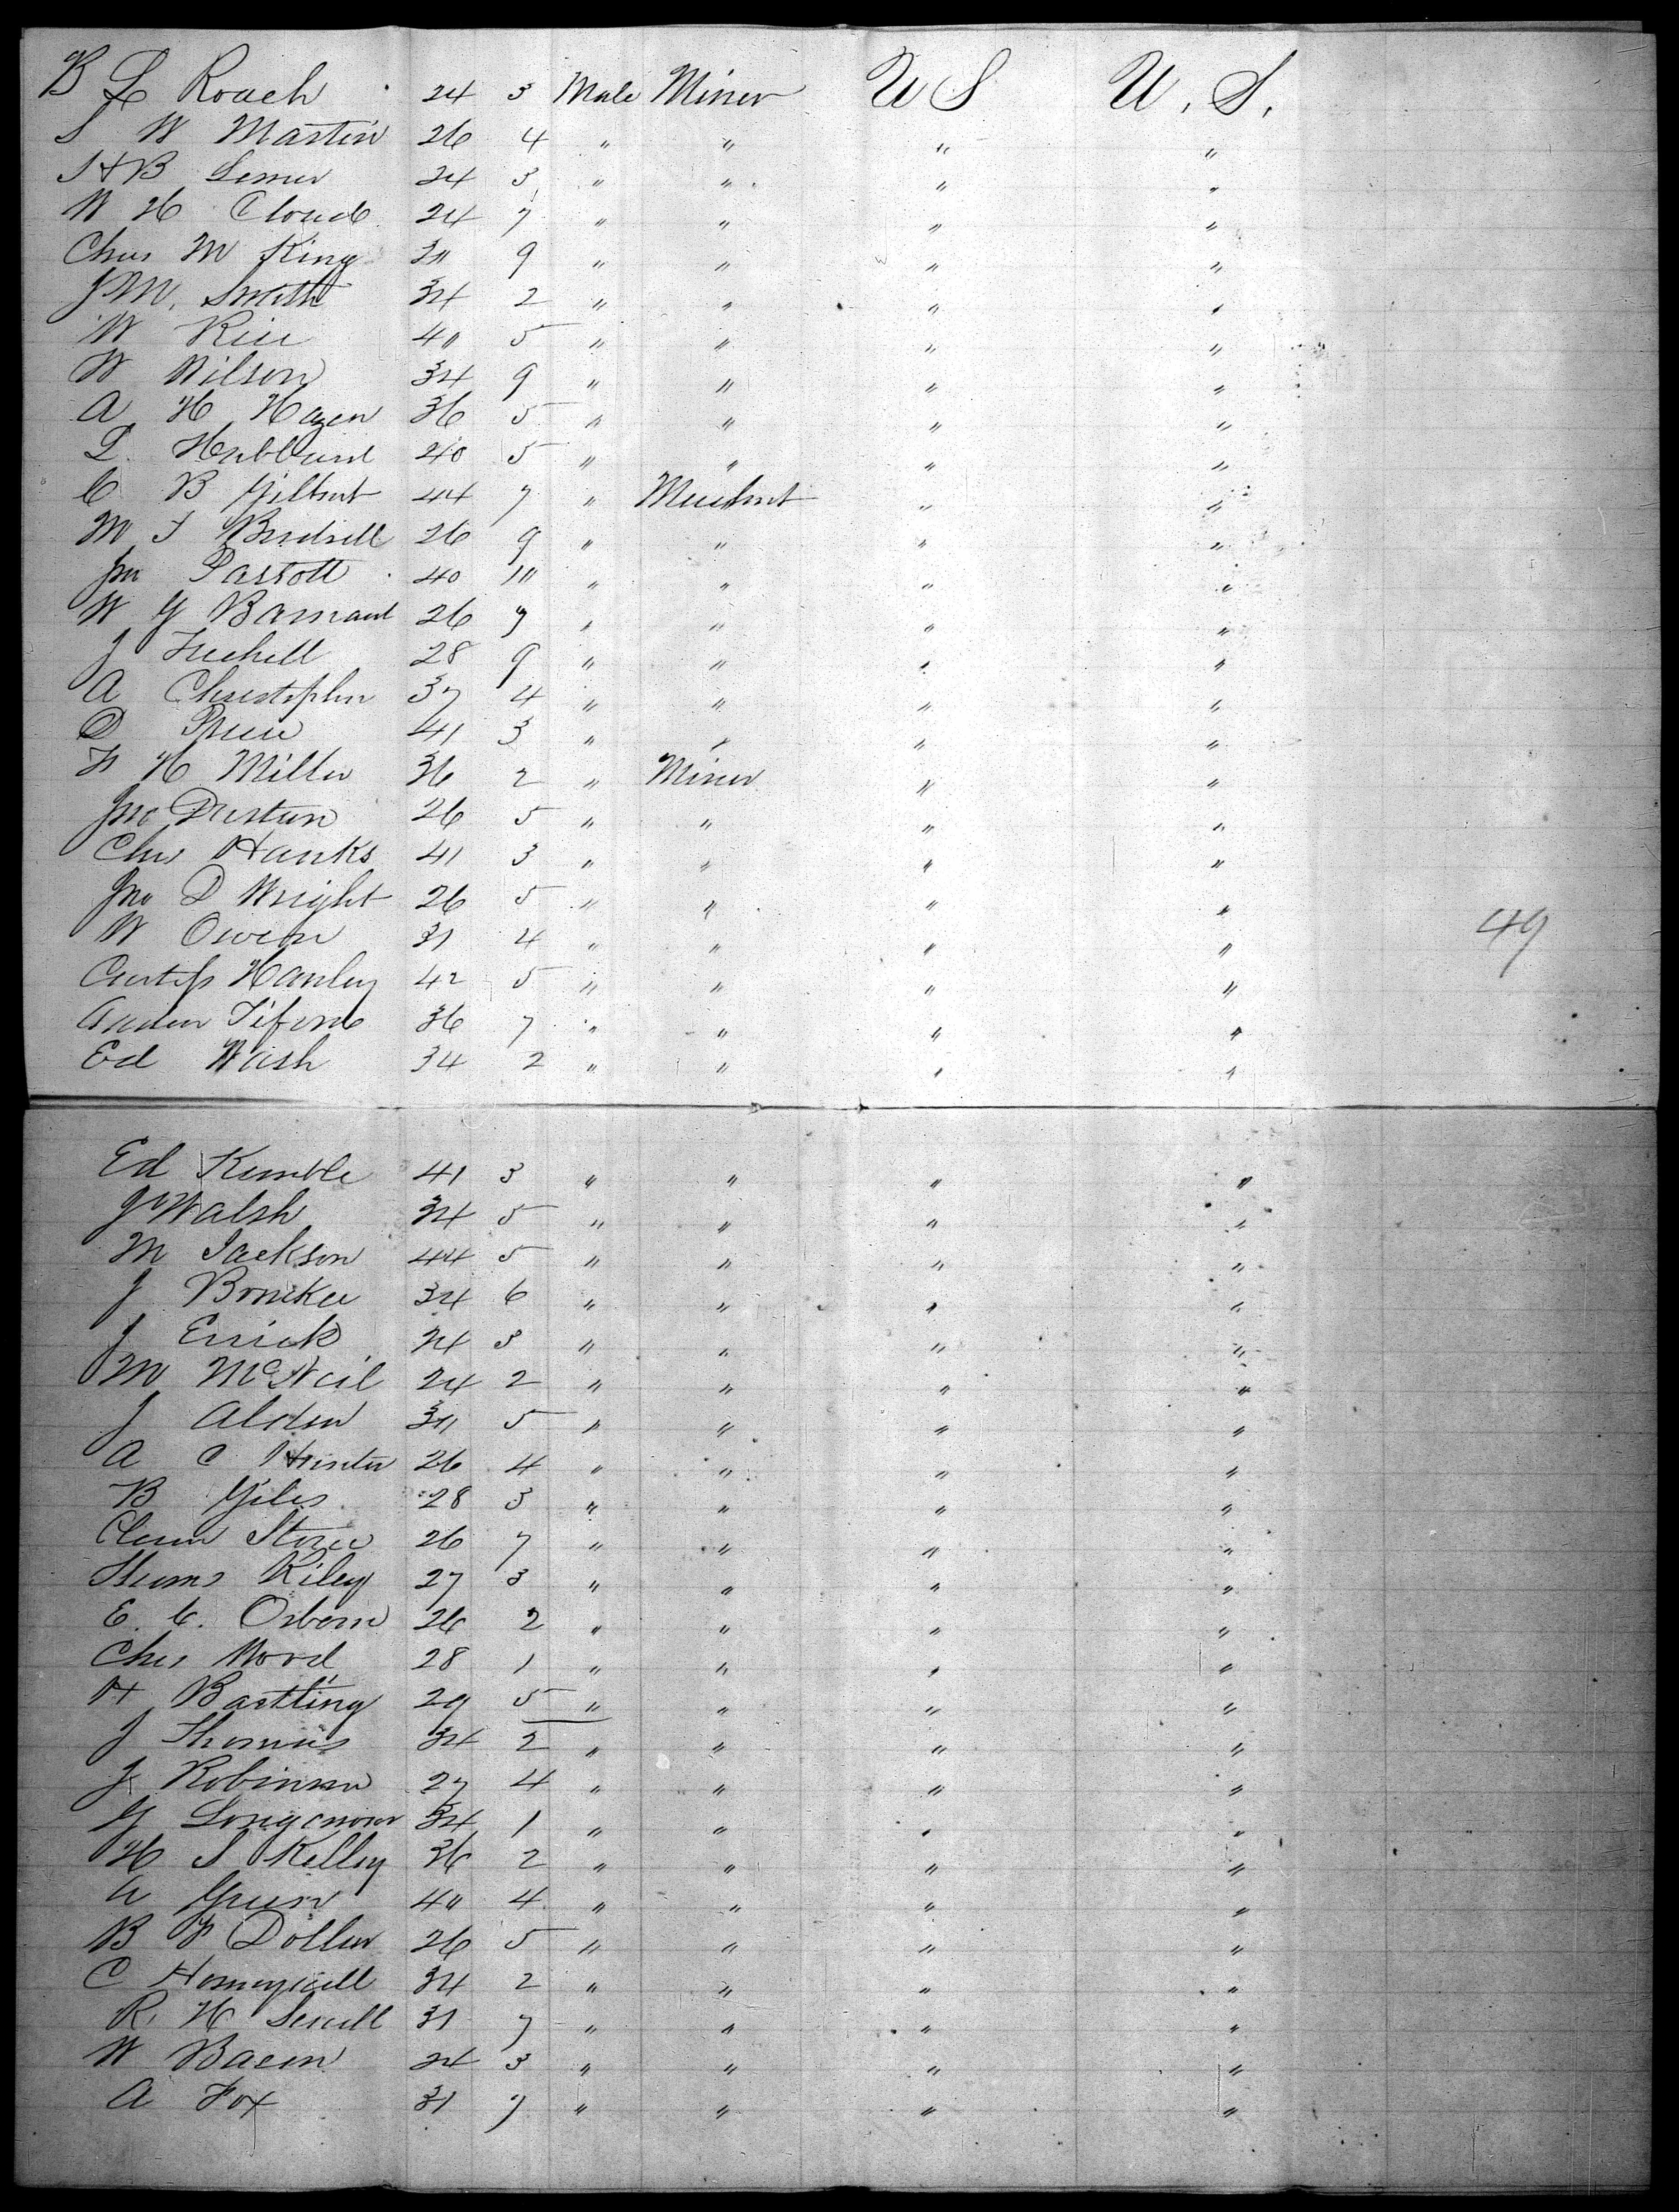 B L Roach 24 3 Male Miner U S U. S.
S W Martin 26 4 " " " "
24 3 " " " "
W H Cloud 24 7 " " " "
Chas M King 30 9 " " " "
J M. Smith 34 2 " " " "
W Rice 40 5 " " " "
W Wilson 34 9 " " " "
A H Hazen 36 5 " " " "
L. Hubbard 40 5 " " " "
C B Gilbert 44 7 " Merchant " "
M 26 9 " " " "
Jno Parrott 40 10 " " " "
W G Barnard 26 7 " " " "
J 28 9 " " " "
A Christopher 37 4 " " " "
D 41 3 " " " "
H Miller 36 2 " Miner " "
Jno 26 5 " " " "
Chs Hanks 41 3 " " " "
Jno D Wright 26 5 " " " "
W Owen 31 4 " " " "
49
Curtiss Hanley 42 5 " " " "
36 7 " " " "
Ed Wash 34 2 " " " "
Ed Kemble 41 3 " " " "
J Walsh 34 5 " " " "
M Jackson 44 5 " " " "
J 34 6 " " " "
J Errick 24 3 " " " "
M McNeil 24 2 " " " "
J Alden 30 5 " " " "
A C Hunter 26 4 " " " "
B Giles 28 3 " " " "
26 7 " " " "
Thomas Riley 27 3 " " " "
E. C. Osborn 26 2 " " " "
Chs Wood 28 1 " " " "
H Bartling 29 5 " " " "
J Thomas 34 2 " " " "
J Robinson 27 4 " " " "
G 34 1 " " " "
H S Kelley 36 2 " " " "
Green 40 4 " " " "
B F Dollar 26 5 " " " "
C Honeywell 34 2 " " " "
R. H Sewell 31 7 " " " "
W Bacon 24 3 " " " "
A Fox 31 7 " " " "